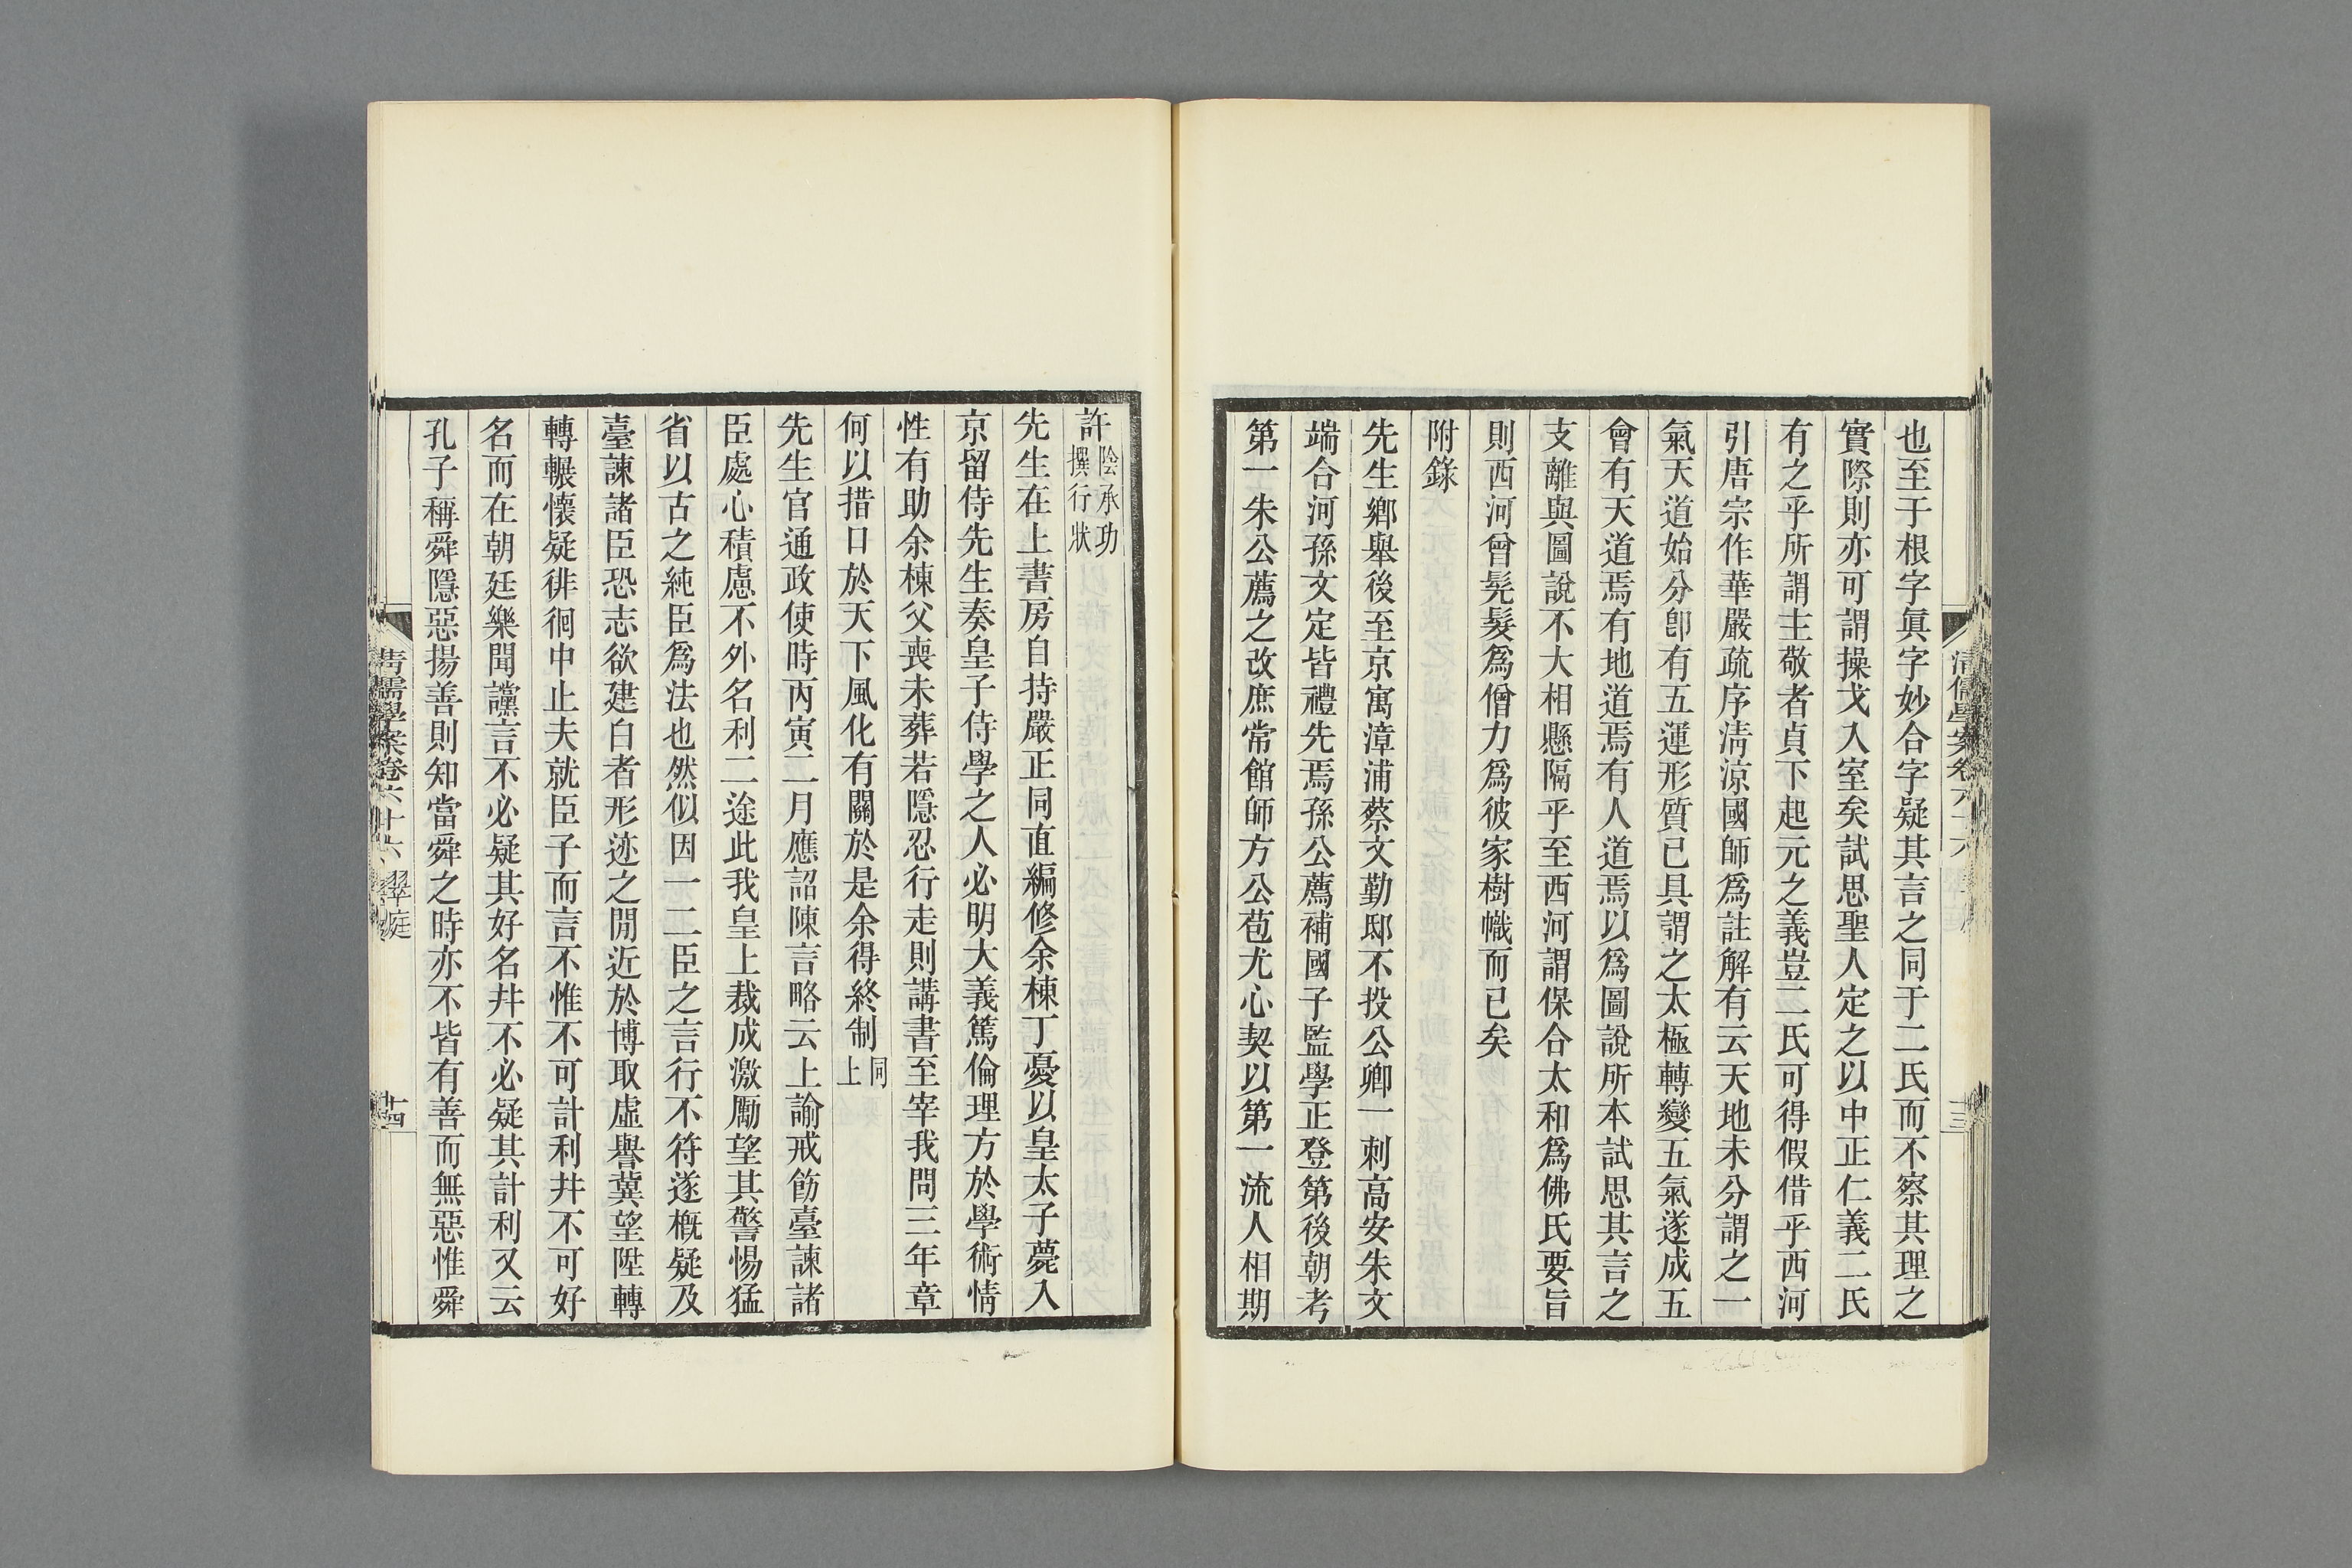 也至于根字眞字妙合字疑其言之同于二氏而不察其理之
實際則亦可謂操戈入室矣試思聖人定之以中正仁義二氏
有之乎所謂主敬者貞下起元之義豈二氏可得假借乎西河
引唐宗作華嚴疏序淸涼國師爲註解有云天地未分謂之一
氣天道始分卽有五運形質已具謂之太極轉變五氣遂成五
會有天道焉有地道焉有人道焉以爲圖說所本試思其言之
支離與圖說不大相懸隔乎至西河謂保合太和爲佛氏要旨
則西河曾髡髮爲僧力爲彼家樹幟而已矣
附錄
先生鄉舉後至京寓漳浦蔡文勤邸不投公卿一刺高安朱文
端合河孫文定皆禮先焉孫公薦補國子監學正登第後朝考
第一朱公薦之改庶常館師方公苞尤心契以第一流人相期
許陰承功撰行狀
先生在上書房自持嚴正同直編修余棟丁憂以皇太子薨入
京留侍先生奏皇子侍學之人必明大義篤倫理方於學術情
性有助余棟父喪未葬若隱忍行走則講書至宰我問三年章
何以措口於天下風化有關於是余得終制同上
先生官通政使時丙寅二月應詔陳言略云上諭戒飭臺諫諸
臣處心積慮不外名利二途此我皇上裁成激勵望其警惕猛
省以古之純臣爲法也然似因一二臣之言行不符遂槪疑及
臺諫諸臣恐志欲建白者形迹之閒近於博取虛譽冀望陞轉
轉輾懷疑徘徊中止夫就臣子而言不惟不可計利幷不可好
名而在朝廷樂聞讜言不必疑其好名幷不必疑其計利又云
孔子稱舜隱惡揚善則知當舜之時亦不皆有善而無惡惟舜
淸儒學案卷六十六 翠庭
十四